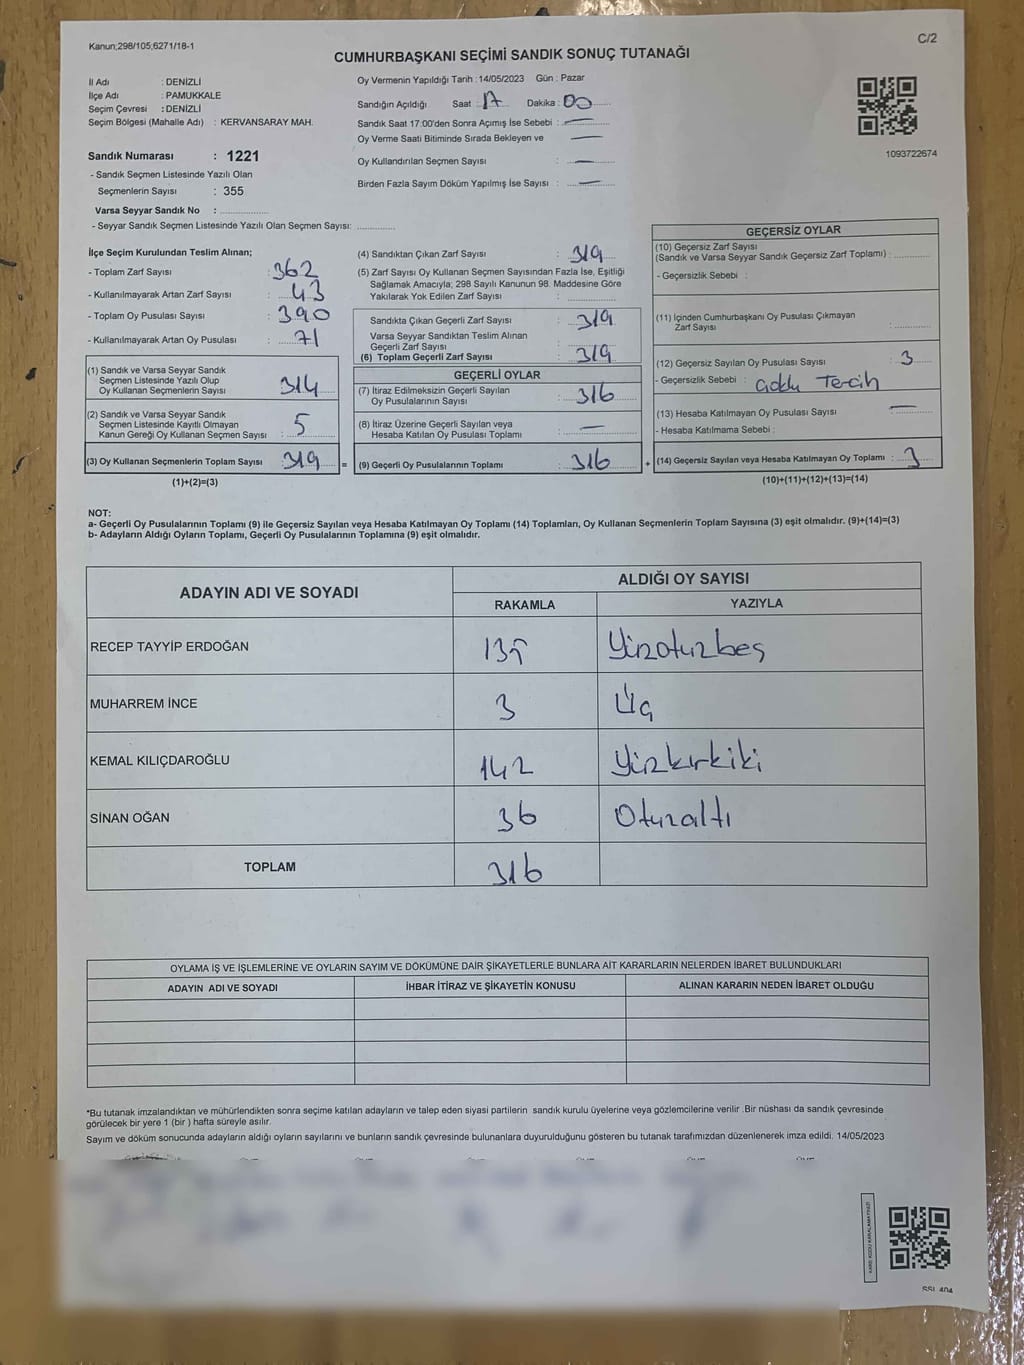 Kanun;298/105;6271/18-1
C/2
CUMHURBAŞKANI SEÇİMİ SANDIK SONUÇ TUTANAĞI
İl Adı : DENİZLİ
İlçe Adı : PAMUKKALE
Seçim Çevresi : DENİZLİ
Seçim Bölgesi (Mahalle Adı) : KERVANSARAY MAH.
Sandık Numarası : 1221
- Sandık Seçmen Listesinde Yazılı Olan
Seçmenlerin Sayısı : 355
Varsa Seyyar Sandık No :
- Seyyar Sandık Seçmen Listesinde Yazılı Olan Seçmen Sayısı:
Oy Vermenin Yapıldığı Tarih : 14/05/2023 Gün : Pazar
Sandığın Açıldığı Saat : 17 Dakika : 00
Sandık Saat 17:00'den Sonra Açımış İse Sebebi : —
Oy Verme Saati Bitiminde Sırada Bekleyen ve —
Oy Kullandırılan Seçmen Sayısı : —
Birden Fazla Sayım Döküm Yapılmış İse Sayısı : —
1093722674
İlçe Seçim Kurulundan Teslim Alınan;
- Toplam Zarf Sayısı : 362
- Kullanılmayarak Artan Zarf Sayısı : 43
- Toplam Oy Pusulası Sayısı : 390
- Kullanılmayarak Artan Oy Pusulası : 71
(1) Sandık ve Varsa Seyyar Sandık
Seçmen Listesinde Yazılı Olup
Oy Kullanan Seçmenlerin Sayısı : 314
(2) Sandık ve Varsa Seyyar Sandık
Seçmen Listesinde Kayıtlı Olmayan
Kanun Gereği Oy Kullanan Seçmen Sayısı : 5
(3) Oy Kullanan Seçmenlerin Toplam Sayısı : 319 =
(1)+(2)=(3)
(4) Sandıktan Çıkan Zarf Sayısı : 319
(5) Zarf Sayısı Oy Kullanan Seçmen Sayısından Fazla İse, Eşitliği
Sağlamak Amacıyla; 298 Sayılı Kanunun 98. Maddesine Göre
Yakılarak Yok Edilen Zarf Sayısı :
Sandıkta Çıkan Geçerli Zarf Sayısı : 319
Varsa Seyyar Sandıktan Teslim Alınan
Geçerli Zarf Sayısı :
(6) Toplam Geçerli Zarf Sayısı : 319
GEÇERLİ OYLAR
(7) İtiraz Edilmeksizin Geçerli Sayılan
Oy Pusulalarının Sayısı : 316
(8) İtiraz Üzerine Geçerli Sayılan veya
Hesaba Katılan Oy Pusulası Toplamı : —
(9) Geçerli Oy Pusulalarının Toplamı : 316 +
GEÇERSİZ OYLAR
(10) Geçersiz Zarf Sayısı
(Sandık ve Varsa Seyyar Sandık Geçersiz Zarf Toplamı) :
- Geçersizlik Sebebi :
(11) İçinden Cumhurbaşkanı Oy Pusulası Çıkmayan
Zarf Sayısı :
(12) Geçersiz Sayılan Oy Pusulası Sayısı : 3
- Geçersizlik Sebebi : çoklu Tercih
(13) Hesaba Katılmayan Oy Pusulası Sayısı : —
- Hesaba Katılmama Sebebi :
(14) Geçersiz Sayılan veya Hesaba Katılmayan Oy Toplamı : 3
(10)+(11)+(12)+(13)=(14)
NOT:
a- Geçerli Oy Pusulalarının Toplamı (9) ile Geçersiz Sayılan veya Hesaba Katılmayan Oy Toplamı (14) Toplamları, Oy Kullanan Seçmenlerin Toplam Sayısına (3) eşit olmalıdır. (9)+(14)=(3)
b- Adayların Aldığı Oyların Toplamı, Geçerli Oy Pusulalarının Toplamına (9) eşit olmalıdır.
ADAYIN ADI VE SOYADI ALDIĞI OY SAYISI
RAKAMLA YAZIYLA
RECEP TAYYİP ERDOĞAN 135 Yüzotuzbeş
MUHARREM İNCE 3 Üç
KEMAL KILIÇDAROĞLU 142 Yüzkırkiki
SİNAN OĞAN 36 Otuzaltı
TOPLAM 316
OYLAMA İŞ VE İŞLEMLERİNE VE OYLARIN SAYIM VE DÖKÜMÜNE DAİR ŞİKAYETLERLE BUNLARA AİT KARARLARIN NELERDEN İBARET BULUNDUKLARI
ADAYIN ADI VE SOYADI İHBAR İTİRAZ VE ŞİKAYETİN KONUSU ALINAN KARARIN NEDEN İBARET OLDUĞU
*Bu tutanak imzalandıktan ve mühürlendikten sonra seçime katılan adayların ve talep eden siyasi partilerin sandık kurulu üyelerine veya gözlemcilerine verilir .Bir nüshası da sandık çevresinde
görülecek bir yere 1 (bir ) hafta süreyle asılır.
Sayım ve döküm sonucunda adayların aldığı oyların sayılarını ve bunların sandık çevresinde bulunanlara duyurulduğunu gösteren bu tutanak tarafımızdan düzenlenerek imza edildi. 14/05/2023
KARE KODU KARALAMAYINIZ!